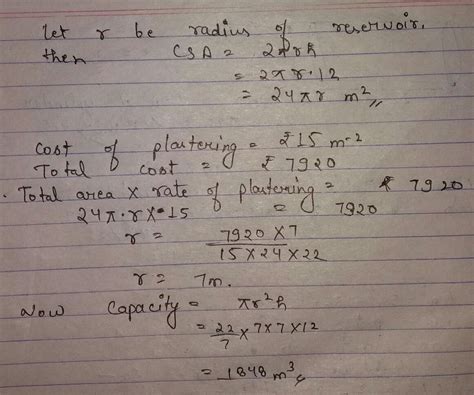 Let r be radius of reservoir.
then CSA = 2πrh
= 2πr·12
= 24πr m²
Cost of plastering = ₹15 m⁻²
Total cost = ₹ 7920
Total area × rate of plastering = ₹ 7920
24π·r×15 = 7920
r = 7920 × 7
15×24×22
r = 7m.
Now Capacity = πr²h
= 22/7 × 7×7×12
= 1848 m³